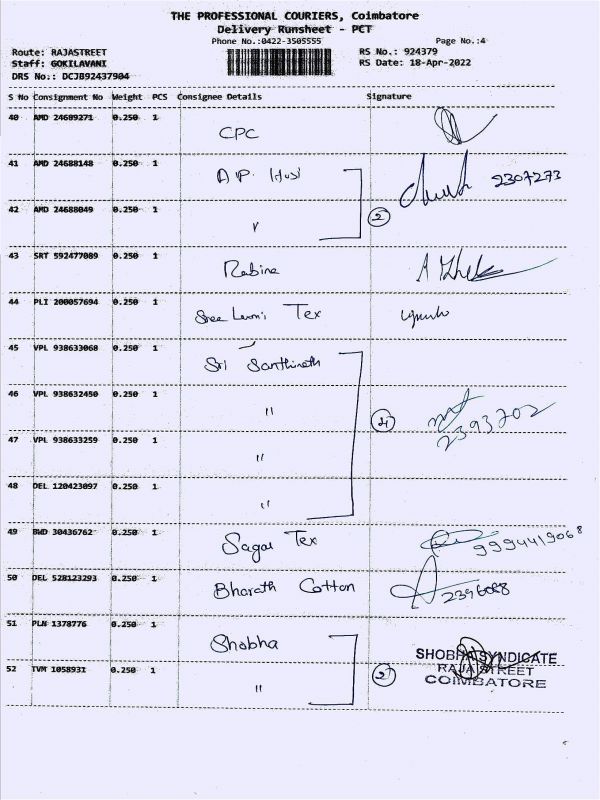 THE PROFESSIONAL COURIERS, Coimbatore
Delivery Runsheet - PCT
Phone No.:0422-3505555 Page No.:4
Route: RAJASTREET RS No.: 924379
Staff: GOKILAVANI RS Date: 18-Apr-2022
DRS No.: DCJB92437904
S No Consignment No Weight PCS Consignee Details Signature
40 AMD 24689271 0.250 1 CPC
41 AMD 24688148 0.250 1 A.P. 2307273
42 AMD 24688049 0.250 1 " 2
43 SRT 592477089 0.250 1 Rabina
44 PLI 200057694 0.250 1 Sree Laxmi Tex
45 VPL 938633068 0.250 1 Sri Santhinath
46 VPL 938632450 0.250 1 " 4 2393702
47 VPL 938633259 0.250 1 "
48 DEL 120423097 0.250 1 "
49 BWD 30436762 0.250 1 Sagar Tex 9994419068
50 DEL 528123293 0.250 1 Bharath Cotton 2396068
51 PLN 1378776 0.250 1 Shobha SHOBHA SYNDICATE
RAJA STREET
52 TVM 1058931 0.250 1 " 2 COIMBATORE